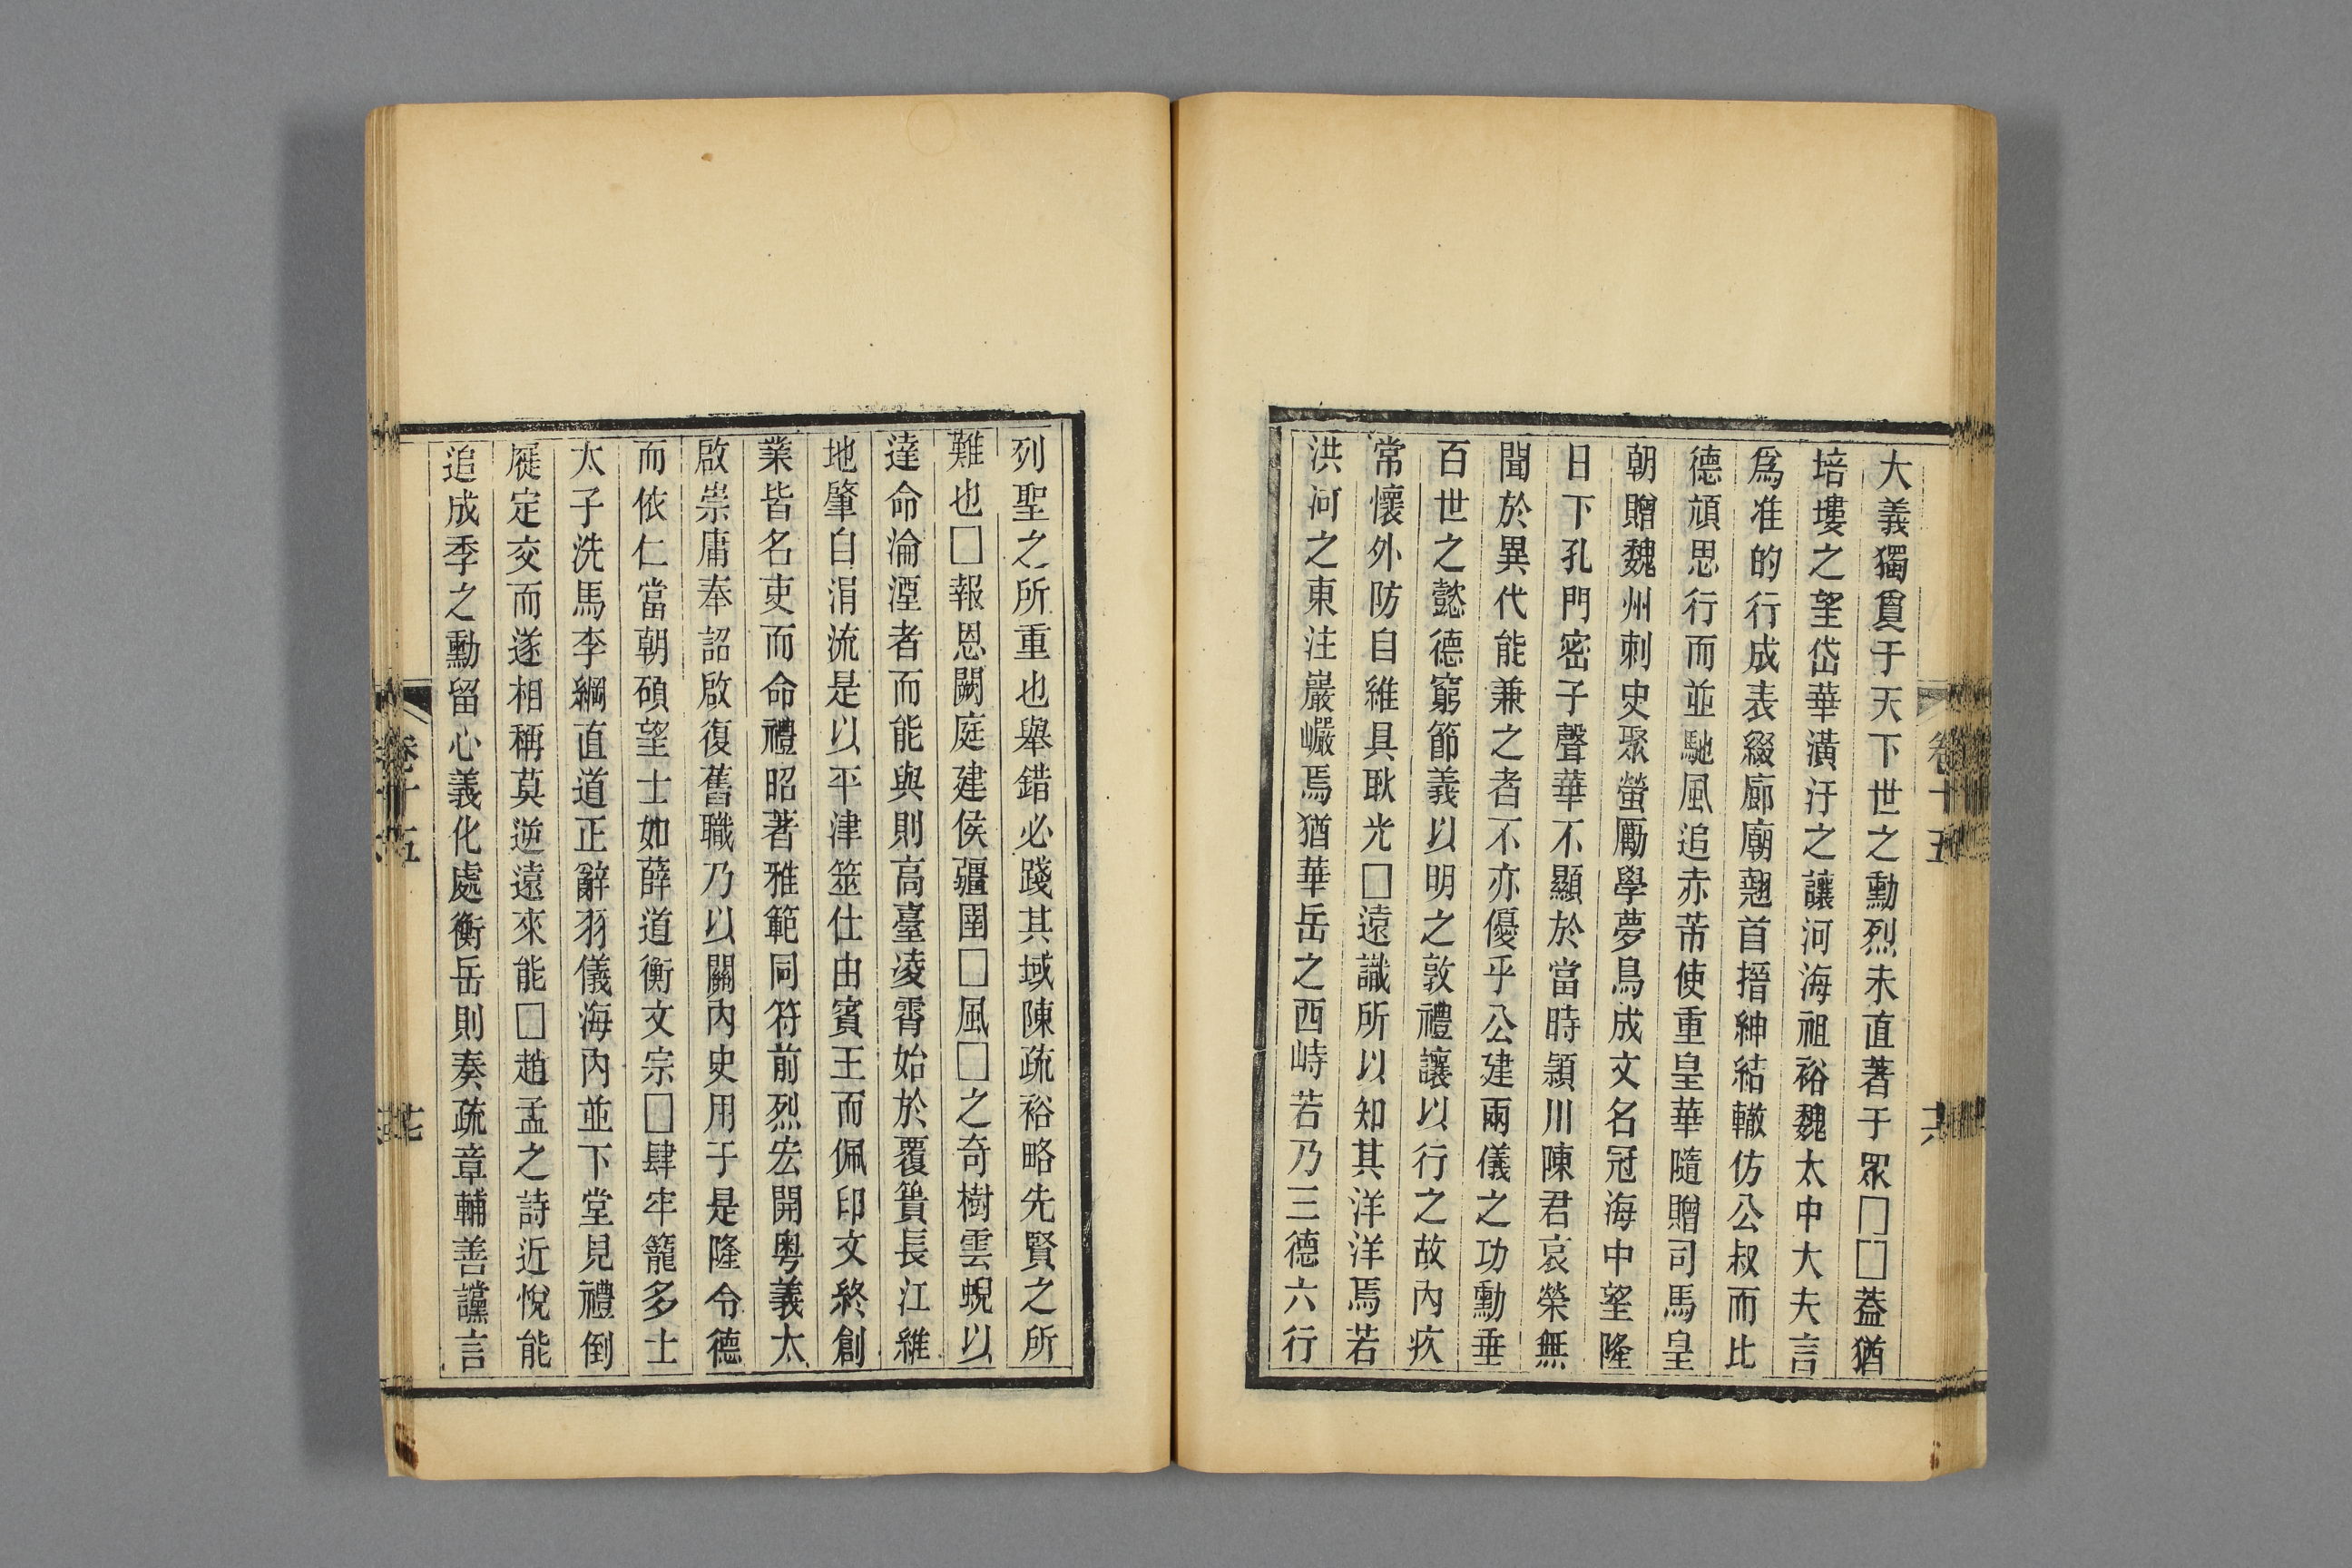 大義獨負于天下世之勳烈未直著于眾□□葢猶
培塿之望岱華潢汙之讓河海祖裕魏太中大夫言
爲准的行成表綴廊廟翹首搢紳結轍仿公叔而比
德頏思行而並馳風追赤芾使重皇華隨贈司馬皇
朝贈魏州刺史聚螢勵學夢鳥成文名冠海中望隆
日下孔門密子聲華不顯於當時潁川陳君哀榮無
聞於異代能兼之者不亦優乎公建兩儀之功勳垂
百世之懿德窮節義以明之敦禮讓以行之故內疚
常懷外防自維具耿光□遠識所以知其洋洋焉若
洪河之東注巖巘焉猶華岳之西峙若乃三德六行
卷十五
六
列聖之所重也舉錯必踐其域陳疏裕略先賢之所
難也□報恩闕庭建侯疆圉□風□之奇樹雲蜺以
達命淪湮者而能與則高臺凌霄始於覆簣長江維
地肇自涓流是以平津筮仕由賓王而佩印文終創
業皆名吏而命禮昭著雅範同符前烈宏開粵義太
啟崇庸奉詔啟復舊職乃以關內史用于是隆令德
而依仁當朝碩望士如薛道衡文宗□肆牢籠多士
太子洗馬李綱直道正辭羽儀海內並下堂見禮倒
屣定交而遂相稱莫逆遠來能□趙孟之詩近悅能
追成季之勳留心義化處衡岳則奏疏章輔善讜言
卷十五